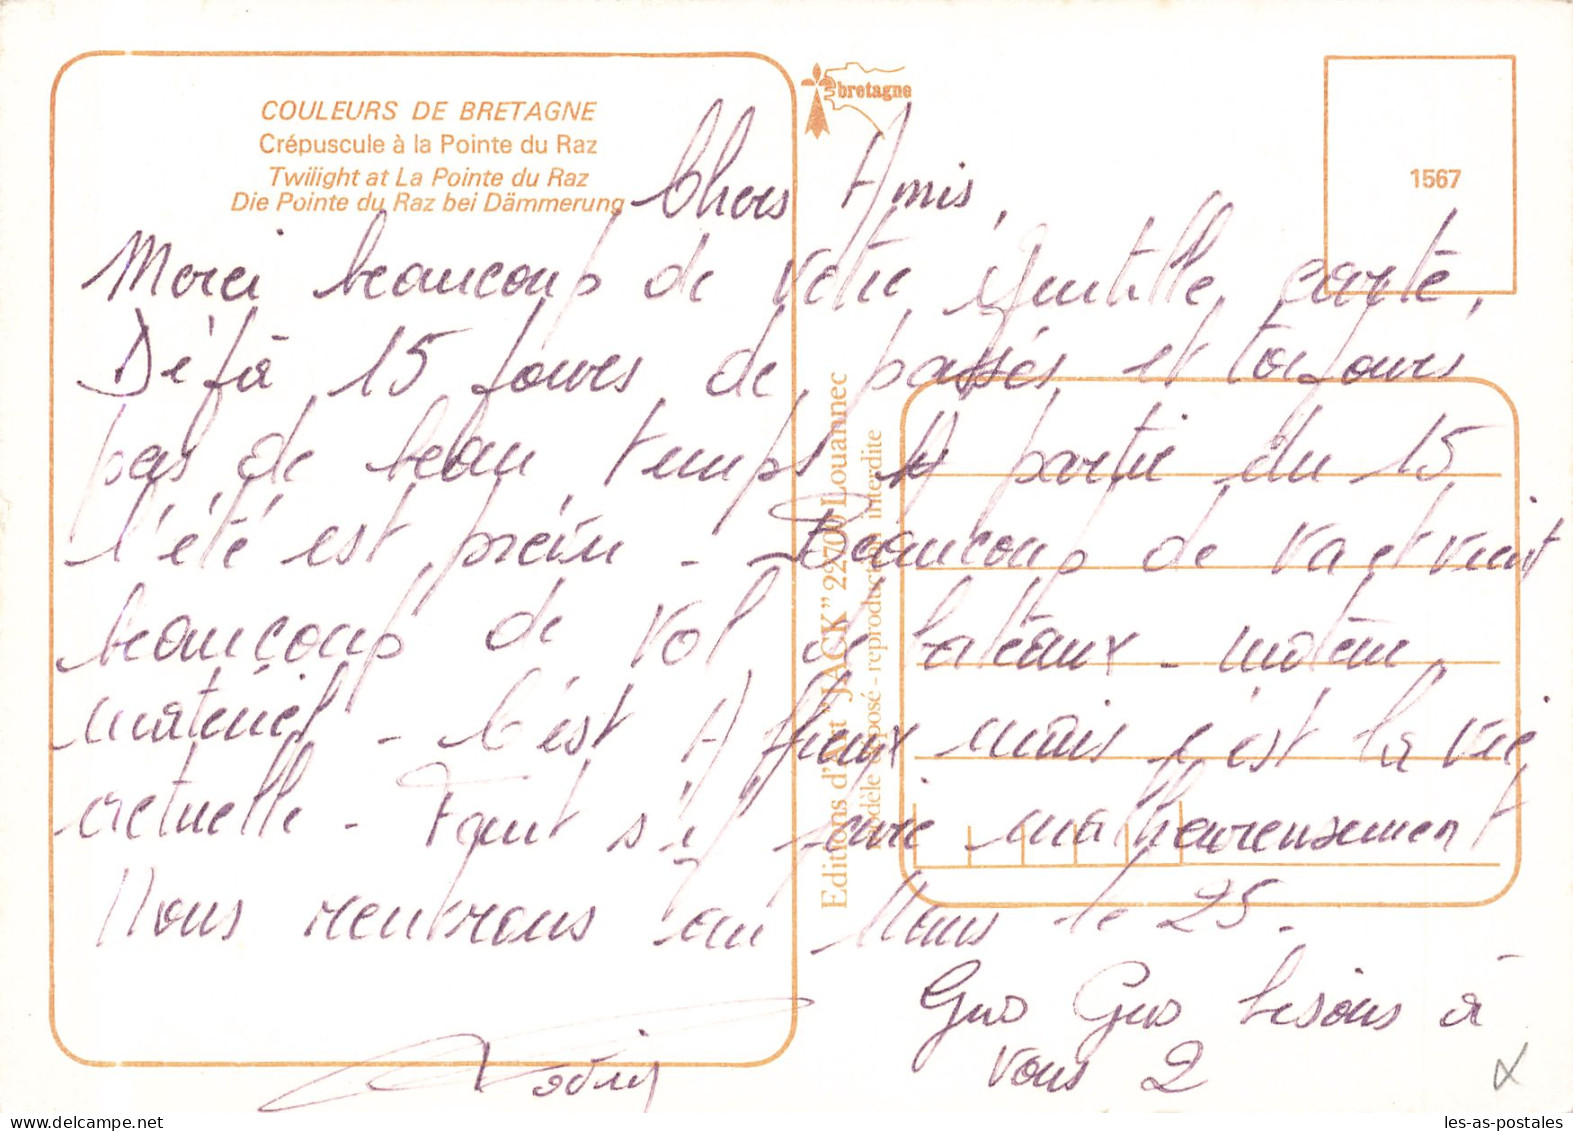 COULEURS DE BRETAGNE
Crépuscule à la Pointe du Raz
Twilight at La Pointe du Raz
Die Pointe du Raz bei Dämmerung
bretagne
1567
Editions d'Art "JACK" 22700 Louannec
Modèle déposé - reproduction interdite
Chers Amis,
Merci beaucoup de votre gentille carte,
Déjà 15 jours de passés et toujours
pas de beau temps A partir du 15
l'été est prévu - Beaucoup de va et vient
beaucoup de vol de bateaux - moteur,
matériel - C'est Affreux mais c'est la vie
actuelle - Faut s'y faire malheureusement
Nous rentrons au Mans le 25.
Gros Gros bisous à
vous 2
les-as-postales